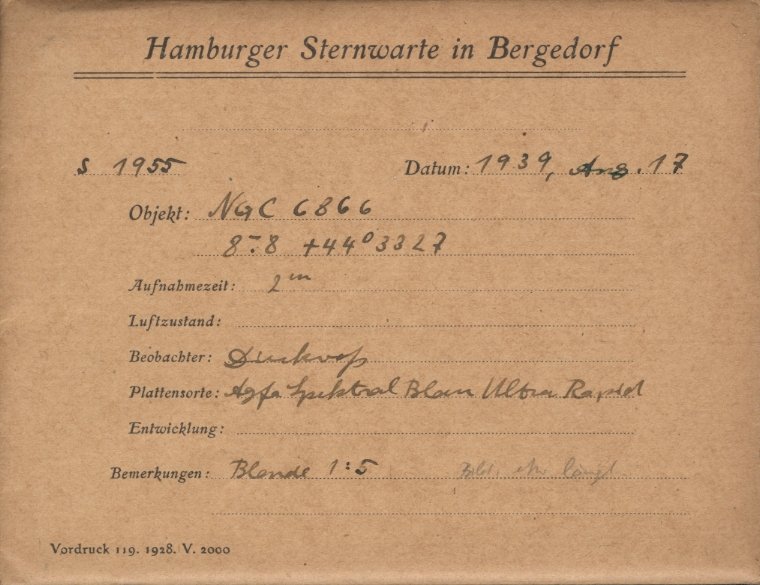 Hamburger Sternwarte in Bergedorf
S 1955 Datum: 1939, Aug. 17
Objekt: NGC 6866
8ᵐ.8 +44°3327
Aufnahmezeit: 2ᵐ
Luftzustand:
Beobachter: Dieckvoss
Plattensorte: Agfa Spektral Blau Ultra Rapid
Entwicklung:
Bemerkungen: Blende 1:5
Vordruck 119. 1928. V. 2000